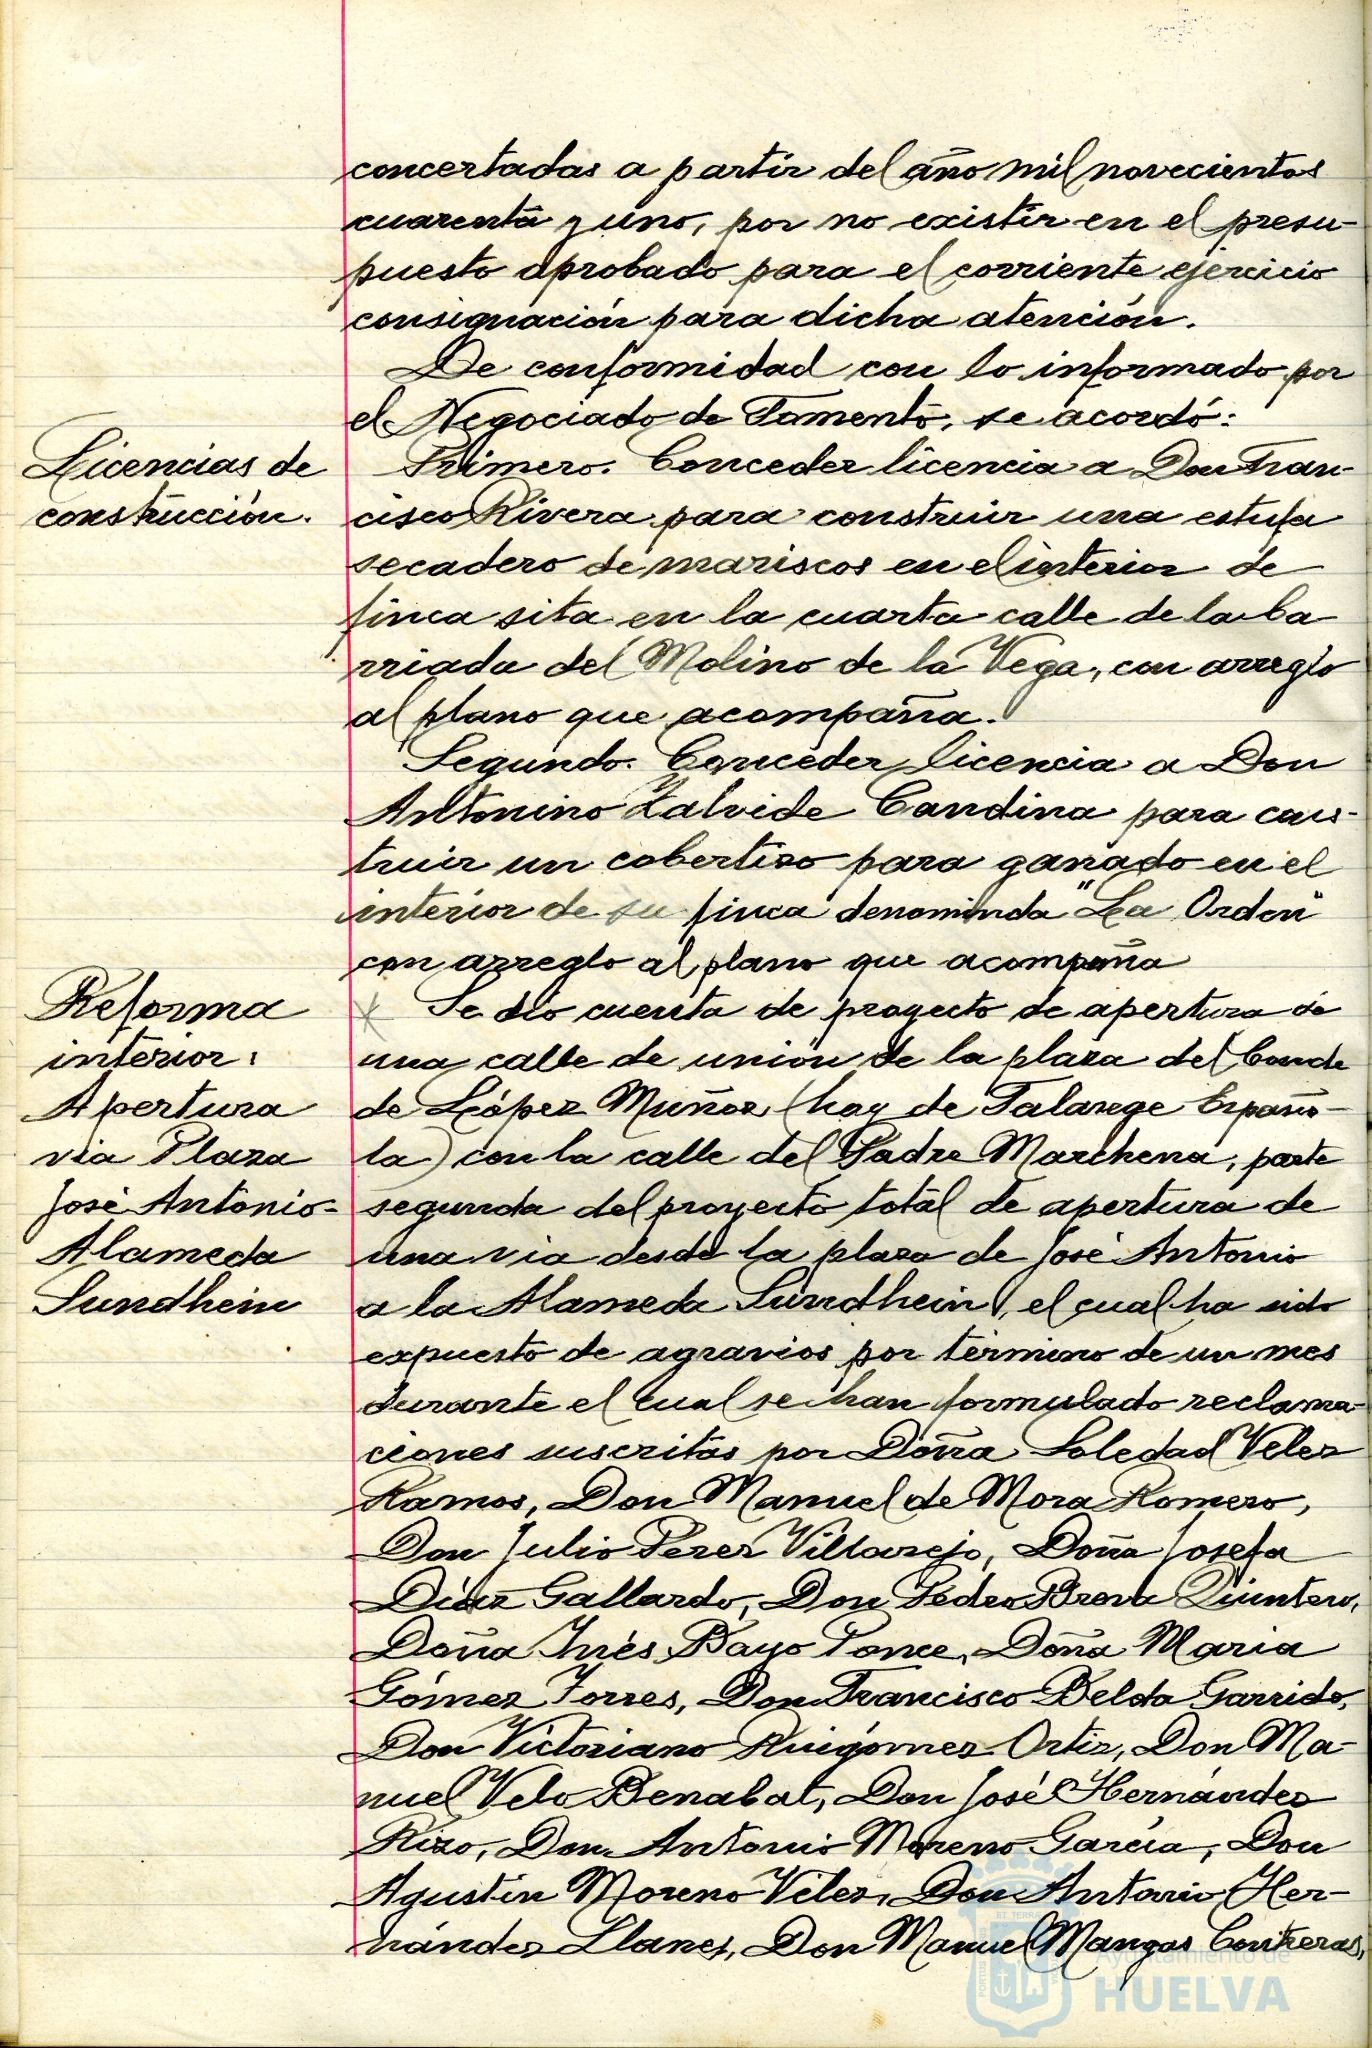 concertadas a partir del año mil novecientos
cuarenta y uno, por no existir en el presu-
puesto aprobado para el corriente ejercicio
consignación para dicha atención.
De conformidad con lo informado por
el Negociado de Fomento, se acordó:
Licencias de
construcción.
Primero. Conceder licencia a Don Fran-
cisco Rivera para construir una estufa
secadero de mariscos en el interior de
finca sita en la cuarta calle de la ba
rriada del Molino de la Vega, con arreglo
al plano que acompaña.
Segundo. Conceder licencia a Don
Antonino Zalvide Candina para cons-
truir un cobertizo para ganado en el
interior de su finca denominda "La Orden"
con arreglo al plano que acompaña
Reforma
interior:
Apertura
via Plaza
José Antonio-
Alameda
Sundhein
Se dio cuenta de proyecto de apertura de
una calle de unión de la plaza del Conde
de López Muñoz (hoy de Falange Españo-
la) con la calle del Padre Marchena, parte
segunda del proyecto total de apertura de
una via desde la plaza de José Antonio
a la Alameda Sundhein, el cual ha sido
expuesto de agravios por término de un mes
durante el cual se han formulado reclama-
ciones suscritas por Doña Soledad Velez
Ramos, Don Manuel de Mora Romero,
Don Julio Perez Villarejo, Doña Josefa
Díaz Gallardo, Don Pedro Quintero,
Doña Inés Bayo Ponce, Doña Maria
Gómez Torres, Don Francisco Belda Garrido,
Don Victoriano Ruigómez Ortiz, Don Ma-
nuel Velo Benabat, Don José Hernández
Rizo, Don Antonio Moreno García, Don
Agustín Moreno Vélez, Don Antonio Her-
nández Llanes, Don Manuel Mangas Contreras,
Ayuntamiento de
HUELVA